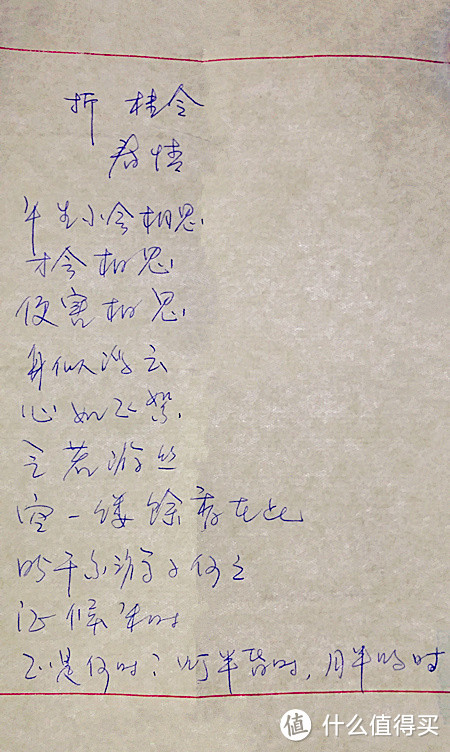 折 桂令
春情
平生不会相思
才会相思
便害相思
身似浮云
心如飞絮
气若游丝
空一缕馀香在此
盼千金游子何之
证候来时
正是何时？灯半昏时，月半明时
值 什么值得买